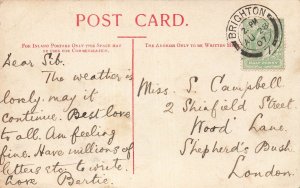 POST CARD.
FOR INLAND POSTAGE ONLY THIS SPACE MAY
BE USED FOR CORRESPONDENCE
THE ADDRESS ONLY TO BE WRITTEN
BRIGHTON
2 PM
07
HALFPENNY
Dear Sib.
The weather is
lovely, may it
continue. Best love
to all. Am feeling
fine. Have millions of
letters etc to write.
Love Bertie.
Miss. S. Campbell
2 Shinfield Street.
Wood Lane.
Shepherd's Bush
London.